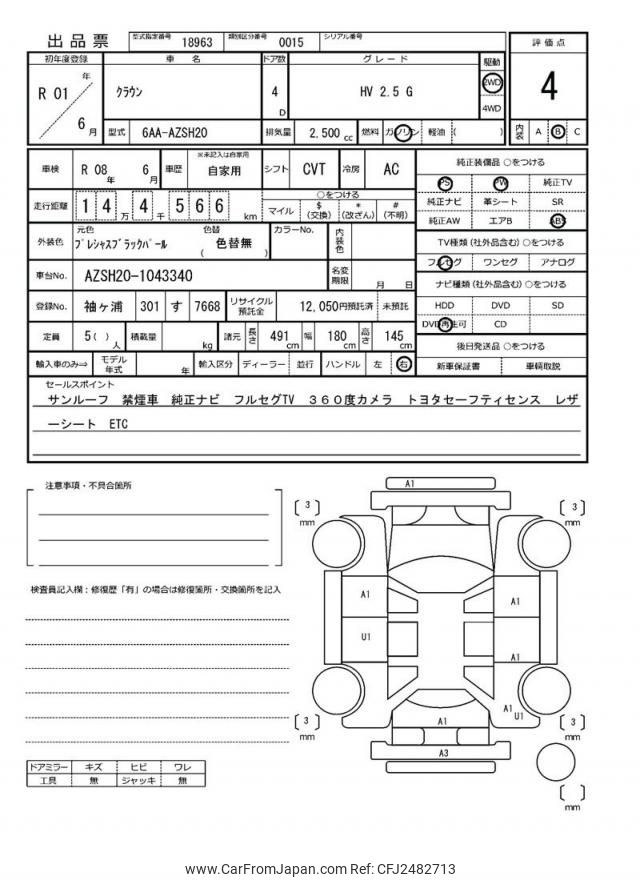 出品票 型式指定番号 18963 類別区分番号 0015 シリアル番号
初年度登録 車 名 ドア数 グレード 駆動 評価点
R 01 年 6 月 クラウン 4 D HV 2.5 G 2WD 4WD 4
型式 6AA-AZSH20 排気量 2,500 cc 燃料 ガソリン 軽油 ( ) 内装 A B C
車検 R 08 年 6 月 車歴 ※未記入は自家用 自家用 シフト CVT 冷房 AC
純正装備品 ○をつける
PS PW 純正TV
純正ナビ 革シート SR
純正AW エアB ABS
走行距離 1 4 万 4 千 5 6 6 km
○をつける
マイル $ (交換) * (改ざん) # (不明)
外装色 元色 プレシャスブラックパール 色替 ( 色替無 ) カラーNo. 内装色
TV種類 (社外品含む) ○をつける
フルセグ ワンセグ アナログ
車台No. AZSH20-1043340 名変期限 月 日
ナビ種類 (社外品含む) ○をつける
HDD DVD SD
DVD再生可 CD
登録No. 袖ヶ浦 301 す 7668 リサイクル預託金 12,050円預託済 未預託
定員 5 ( ) 人 積載量 kg 諸元 長さ 491 cm 幅 180 cm 高さ 145 cm
後日発送品 ○をつける
新車保証書 車輌取説
輸入車のみ⇒ モデル年式 年 輸入区分 ディーラー 並行 ハンドル 左 右
セールスポイント
サンルーフ 禁煙車 純正ナビ フルセグTV 360度カメラ トヨタセーフティセンス レザ
ーシート ETC
注意事項・不具合箇所
検査員記入欄：修復歴「有」の場合は修復箇所・交換箇所を記入
A1
3 mm
3 mm
A1
A1
U1
A1
A1
U1
A1
A3
3 mm
3 mm
mm
ドアミラー キズ ヒビ ワレ
工具 無 ジャッキ 無
www.CarFromJapan.com Ref: CFJ2482713